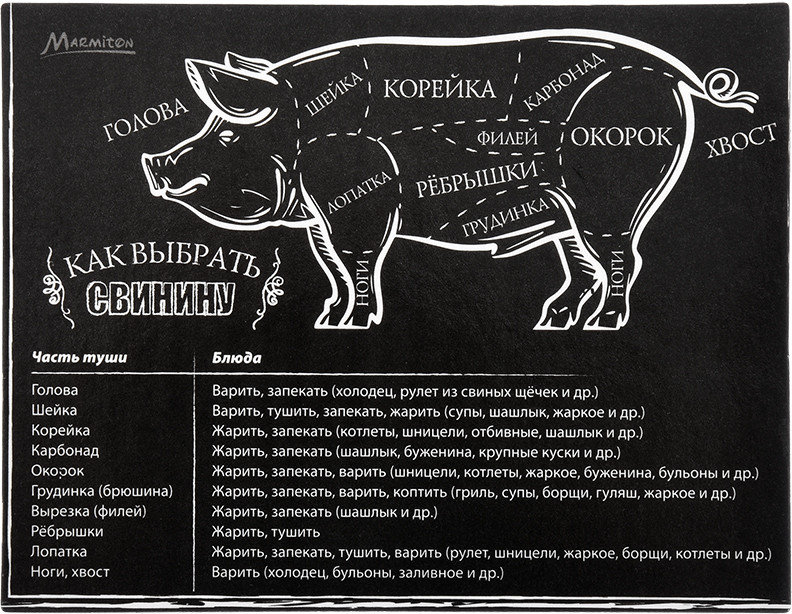 MARMITON
ГОЛОВА
ШЕЙКА
КОРЕЙКА
КАРБОНАД
ФИЛЕЙ
ОКОРОК
ХВОСТ
ЛОПАТКА
РЁБРЫШКИ
ГРУДИНКА
НОГИ
НОГИ
КАК ВЫБРАТЬ
СВИНИНУ
Часть туши Блюда
Голова Варить, запекать (холодец, рулет из свиных щёчек и др.)
Шейка Варить, тушить, запекать, жарить (супы, шашлык, жаркое и др.)
Корейка Жарить, запекать (котлеты, шницели, отбивные, шашлык и др.)
Карбонад Жарить, запекать (шашлык, буженина, крупные куски и др.)
Окорок Жарить, запекать, варить (шницели, котлеты, жаркое, буженина, бульоны и др.)
Грудинка (брюшина) Жарить, запекать, варить, коптить (гриль, супы, борщи, гуляш, жаркое и др.)
Вырезка (филей) Жарить, запекать (шашлык и др.)
Рёбрышки Жарить, тушить
Лопатка Жарить, запекать, тушить, варить (рулет, шницели, жаркое, борщи, котлеты и др.)
Ноги, хвост Варить (холодец, бульоны, заливное и др.)